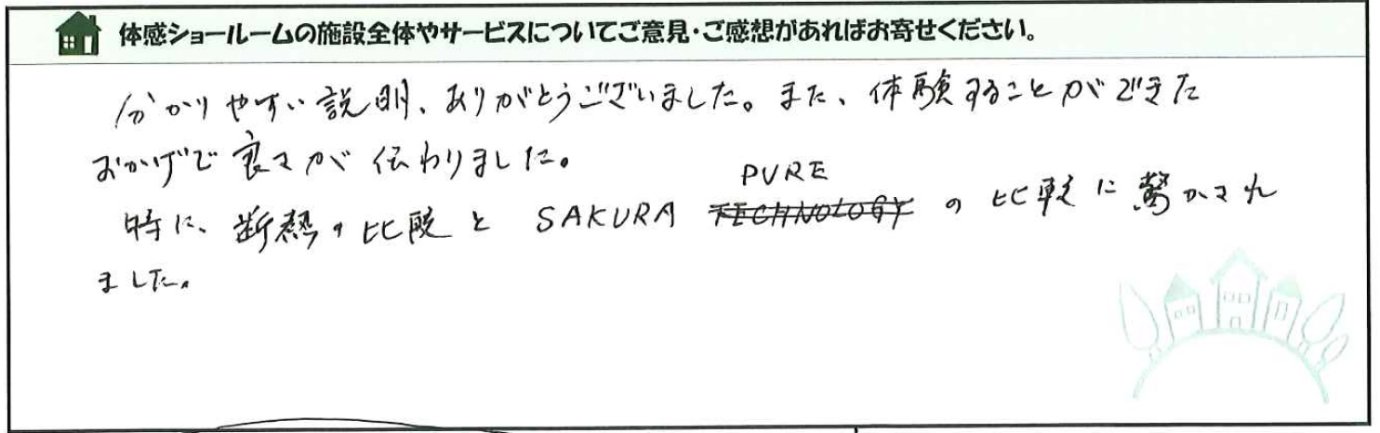 体感ショールームの施設全体やサービスについてご意見・ご感想があればお寄せください。
分かりやすい説明、ありがとうございました。また、体験することができた
おかげで良さが伝わりました。
PURE
時に、断熱の比較と SAKURA TECHNOLOGY の比較に驚かされ
ました。